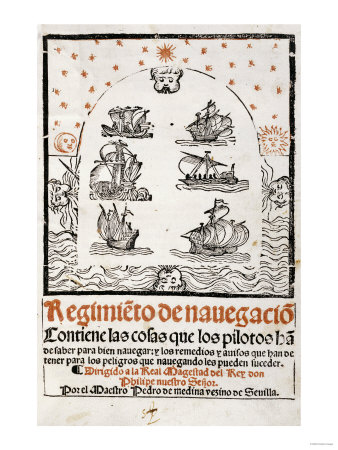 Regimiẽto de nauegaciõ
Contiene las cosas que los pilotos hã
de saber para bien nauegar: y los remedios y auisos que han de
tener para los peligros que nauegando les pueden suceder.
Dirigido a la Real Magestad del Rey don
Philipe nuestro Señor.
Por el Maestro Pedro de medina vezino de Sevilla.